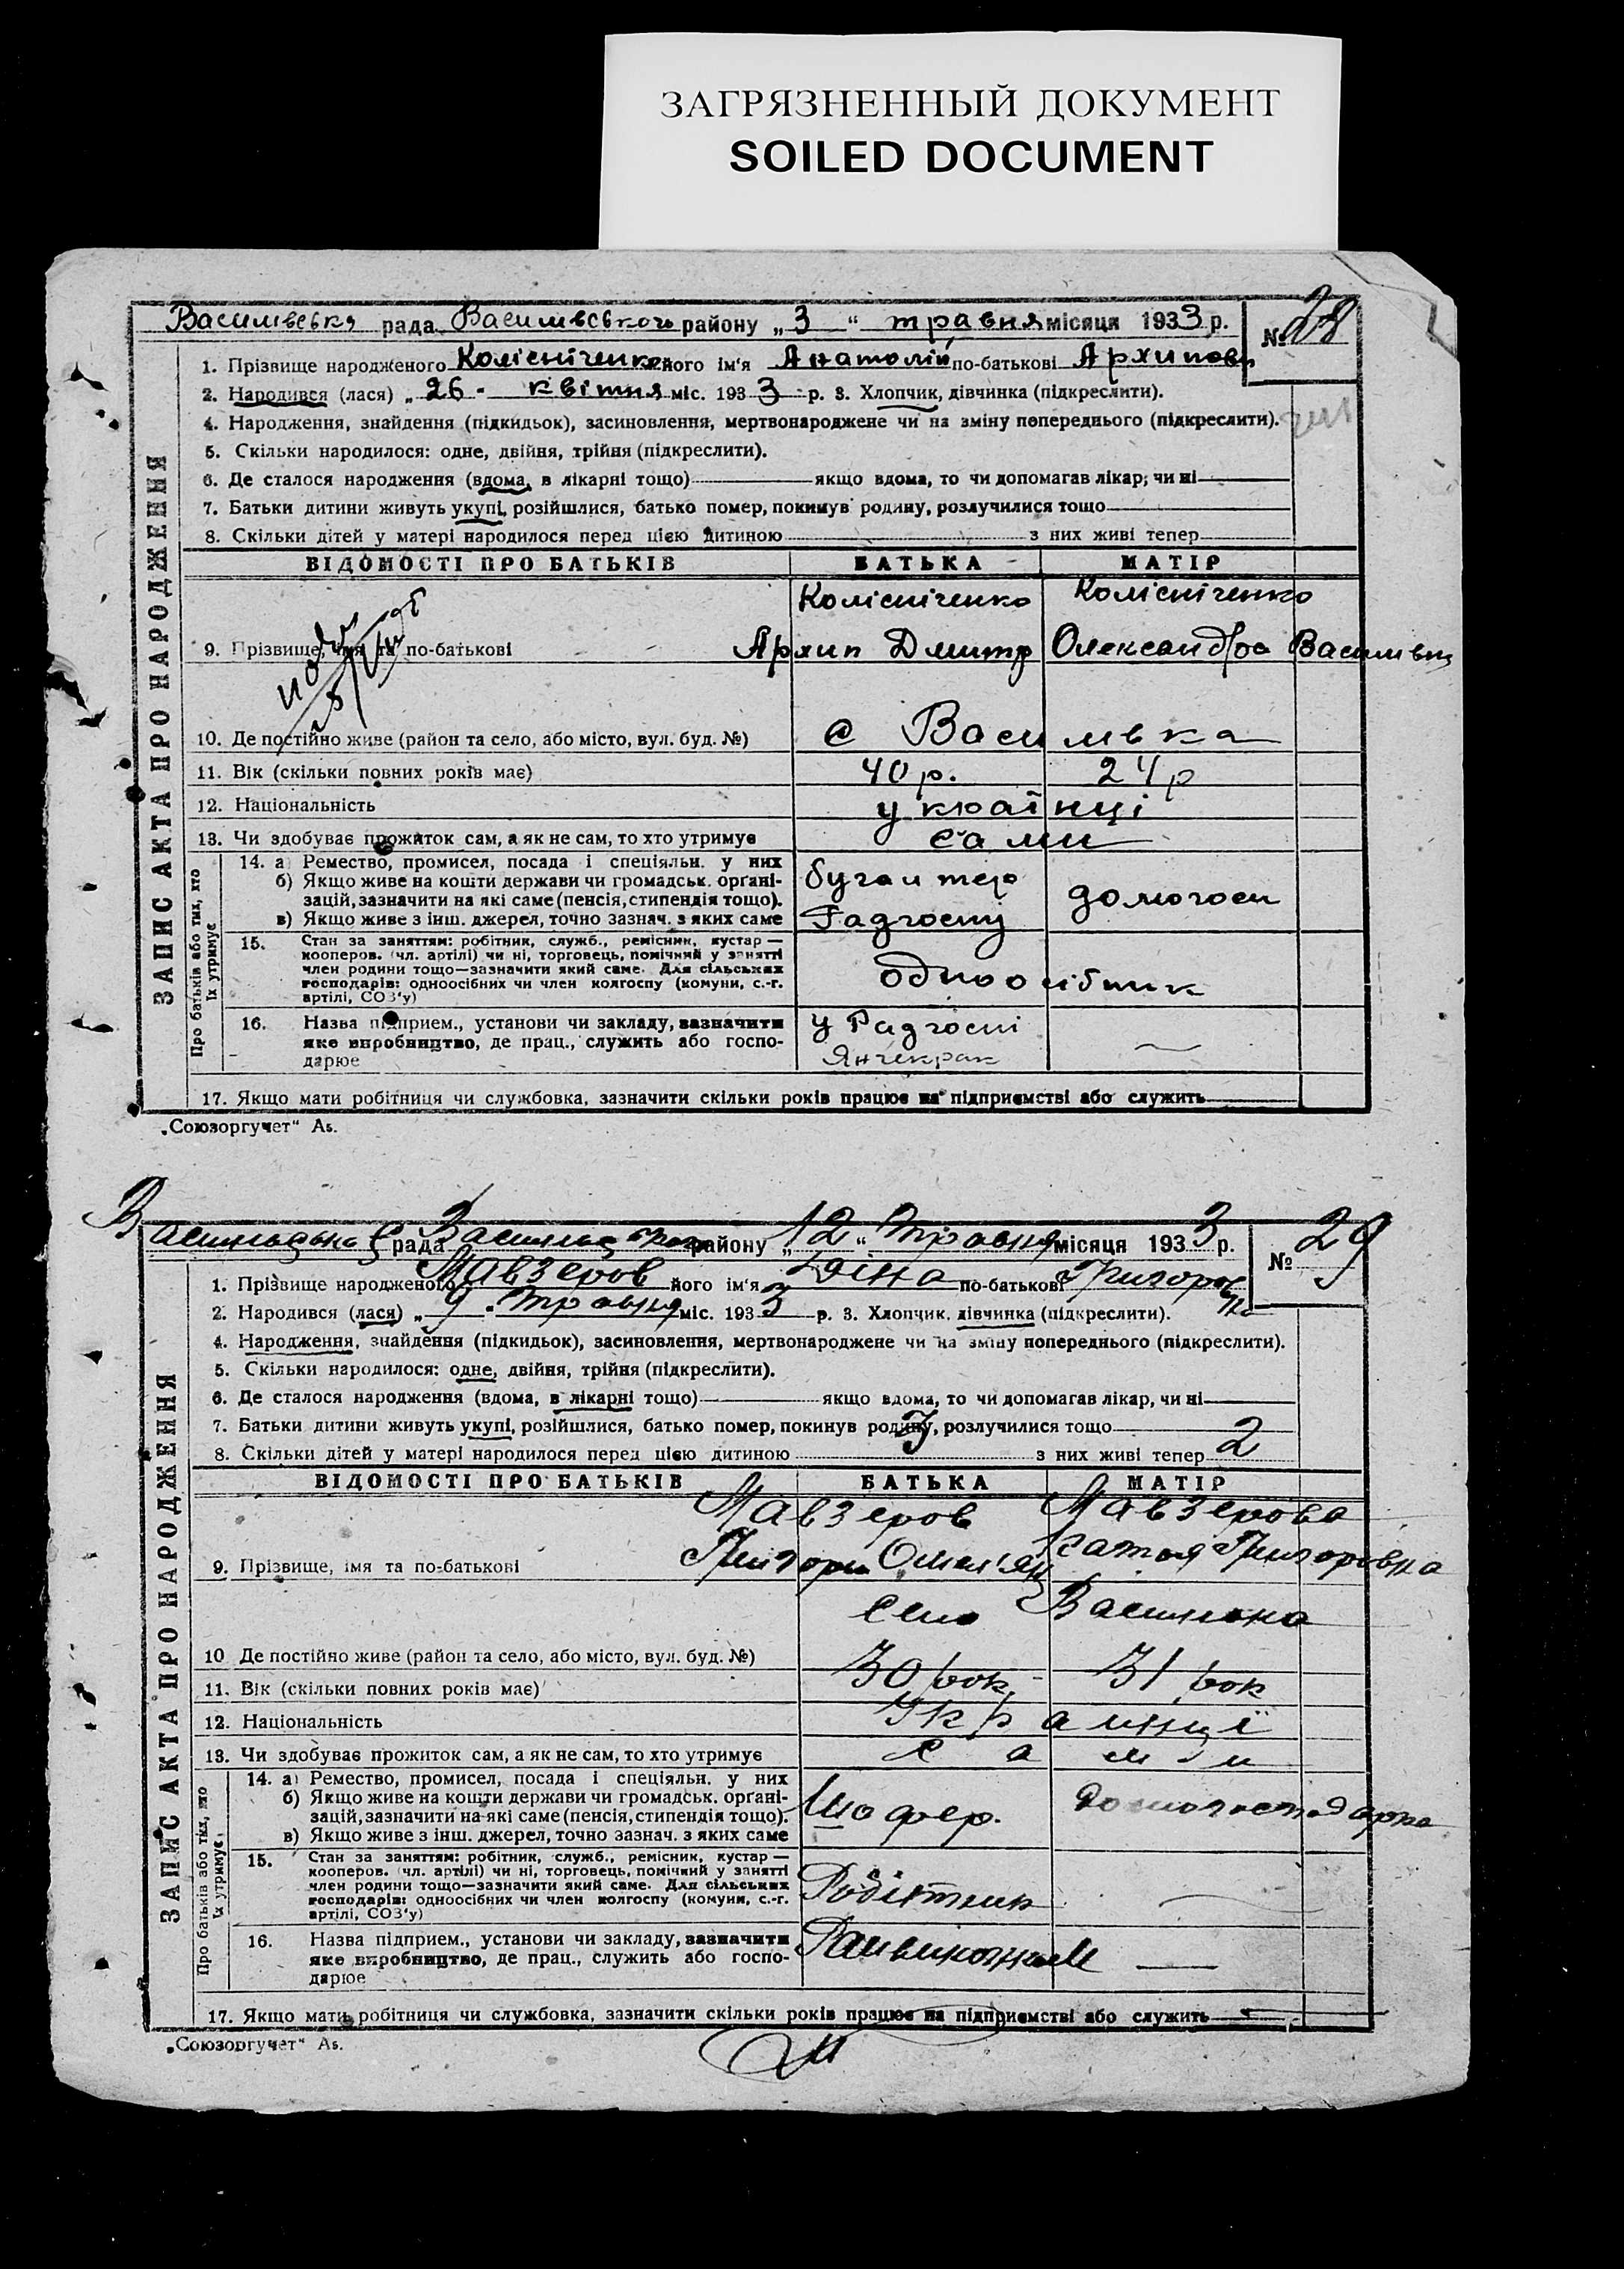 ЗАГРЯЗНЕННЫЙ ДОКУМЕНТ
SOILED DOCUMENT
Василівська рада Василівського району „3“ травня місяця 1933 р. № 28
1. Прізвище народженого Колісніченко його ім'я Анатолій по-батькові Архипов
2. Народився (лася) „26 - квітня міс. 1933 р. 3. Хлопчик, дівчинка (підкреслити).
4. Народження, знайдення (підкидьок), засиновлення, мертвонароджене чи на зміну попереднього (підкреслити).
5. Скільки народилося: одне, двійня, трійня (підкреслити).
6. Де сталося народження (вдома, в лікарні тощо) якщо вдома, то чи допомагав лікар, чи ні
7. Батьки дитини живуть укупі, розійшлися, батько помер, покинув родину, розлучилися тощо
8. Скільки дітей у матері народилося перед цією дитиною з них живі тепер
ЗАПИС АКТА ПРО НАРОДЖЕННЯ
ВІДОМОСТІ ПРО БАТЬКІВ БАТЬКА МАТІР
Колісніченко Колісніченко
9. Прізвище, імя та по-батькові Архип Дмитр Олександра Василівн
10. Де постійно живе (район та село, або місто, вул. буд. №) с Василівка
11. Вік (скільки повних років має) 40 р. 24 р
12. Національність українці
13. Чи здобуває прожиток сам, а як не сам, то хто утримує сами
Про батьків або тих, хто їх утримує
14. а) Ремество, промисел, посада і спеціяльн. у них
б) Якщо живе на кошти держави чи громадськ. органі-
зацій, зазначити на які саме (пенсія, стипендія тощо).
в) Якщо живе з інш. джерел, точно зазнач. з яких саме
бугалтер
Радгоспу
домогосп
15. Стан за заняттям: робітник, служб., ремісник, кустар —
кооперов. (чл. артілі) чи ні, торговець, помічний у занятті
член родини тощо—зазначити який саме. Для сільських
господарів: одноосібних чи член колгоспу (комуни, с.-г.
артілі, СОЗ'у)
одноосібник
16. Назва підприєм., установи чи закладу, зазначити
яке виробництво, де прац., служить або госпо-
дарює
у Радгоспі
Янчекрак
17. Якщо мати робітниця чи службовка, зазначити скільки років працює на підприємстві або служить
„Союзоргучет“ А5.
рада району „12“ Травня місяця 1933 р. № 29
1. Прізвище народженого Мавзеров його ім'я по-батькові Григоров
2. Народився (лася) „9. Травня міс. 1933 р. 3. Хлопчик, дівчинка (підкреслити).
4. Народження, знайдення (підкидьок), засиновлення, мертвонароджене чи на зміну попереднього (підкреслити).
5. Скільки народилося: одне, двійня, трійня (підкреслити).
6. Де сталося народження (вдома, в лікарні тощо) якщо вдома, то чи допомагав лікар, чи ні
7. Батьки дитини живуть укупі, розійшлися, батько помер, покинув родину, розлучилися тощо
8. Скільки дітей у матері народилося перед цією дитиною 3 з них живі тепер 2
ЗАПИС АКТА ПРО НАРОДЖЕННЯ
ВІДОМОСТІ ПРО БАТЬКІВ БАТЬКА МАТІР
Мавзеров Мавзерова
9. Прізвище, імя та по-батькові Григори Омел'ян Катья Григоровна
село
10 Де постійно живе (район та село, або місто, вул. буд. №)
11. Вік (скільки повних років має) 30 рок. 31 рок
12. Національність Українці
13. Чи здобуває прожиток сам, а як не сам, то хто утримує сами
Про батьків або тих, хто їх утримує
14. а) Ремество, промисел, посада і спеціяльн. у них
б) Якщо живе на кошти держави чи громадськ. органі-
зацій, зазначити на які саме (пенсія, стипендія тощо).
в) Якщо живе з інш. джерел, точно зазнач. з яких саме
Шофер.
15. Стан за заняттям: робітник, служб., ремісник, кустар —
кооперов. (чл. артілі) чи ні, торговець, помічний у занятті
член родини тощо—зазначити який саме. Для сільських
господарів: одноосібних чи член колгоспу (комуни, с.-г.
артілі, СОЗ'у)
Робітник
16. Назва підприєм., установи чи закладу, зазначити
яке виробництво, де прац., служить або госпо-
дарює
17. Якщо мати робітниця чи службовка, зазначити скільки років працює на підприємстві або служить
„Союзоргучет“ А5.